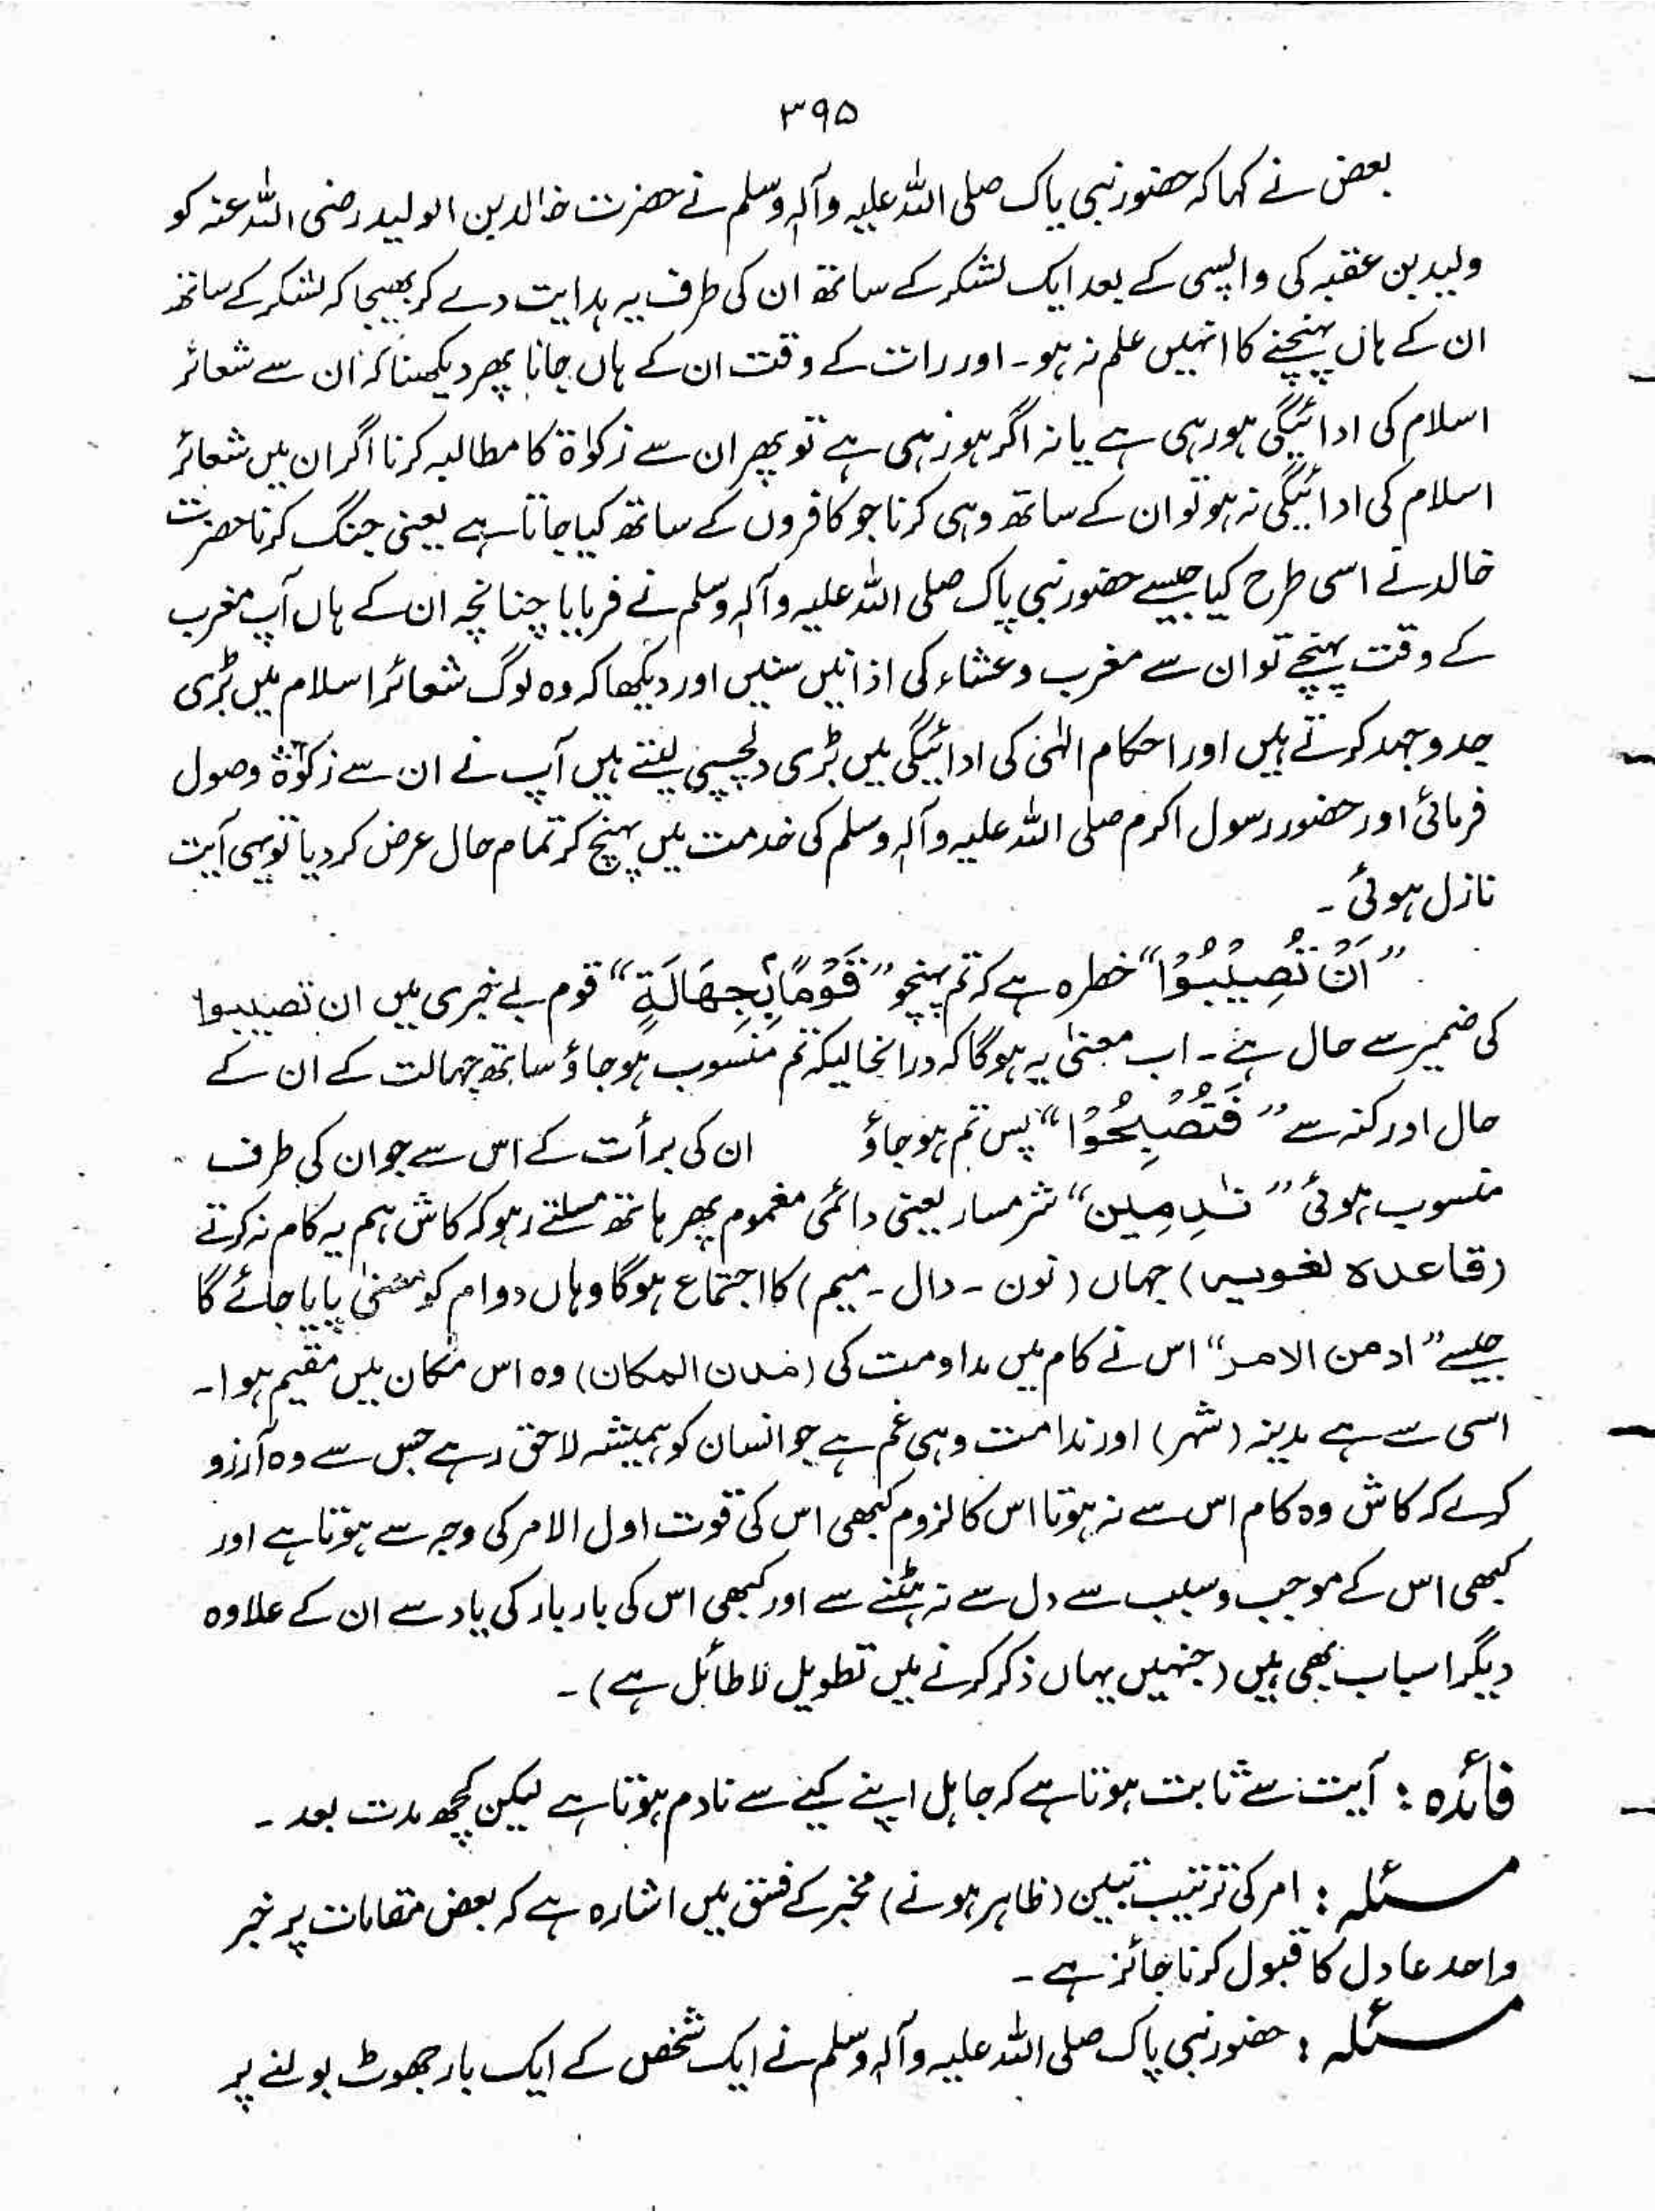 ۳۹۵
بعض نے کہا کہ حضور نبی پاک صلی اللہ علیہ وآلہ وسلم نے حضرت خالد بن الولید رضی اللہ عنہ کو
ولید بن عقبہ کی واپسی کے بعد ایک لشکر کے ساتھ ان کی طرف یہ ہدایت دے کر بھیجا کہ لشکر کے ساتھ
ان کے ہاں پہنچنے کا انہیں علم نہ ہو۔ اور رات کے وقت ان کے ہاں جانا پھر دیکھنا کہ ان سے شعائر
اسلام کی ادائیگی ہو رہی ہے یا نہ اگر ہو رہی ہے تو پھر ان سے زکوٰۃ کا مطالبہ کرنا اگر ان میں شعائر
اسلام کی ادائیگی نہ ہو تو ان کے ساتھ وہی کرنا جو کافروں کے ساتھ کیا جاتا ہے یعنی جنگ کرنا حضرت
خالد نے اسی طرح کیا جیسے حضور نبی پاک صلی اللہ علیہ وآلہ وسلم نے فرمایا چنانچہ ان کے ہاں آپ مغرب
کے وقت پہنچے تو ان سے مغرب و عشاء کی اذانیں سنیں اور دیکھا کہ وہ لوگ شعائر اسلام میں بڑی
جدوجہد کرتے ہیں اور احکام الٰہی کی ادائیگی میں بڑی دلچسپی لیتے ہیں آپ نے ان سے زکوٰۃ وصول
فرمائی اور حضور رسول اکرم صلی اللہ علیہ وآلہ وسلم کی خدمت میں پہنچ کر تمام حال عرض کر دیا تو یہی آیت
نازل ہوئی۔
”اَنْ تُصِیْبُوْا“ خطرہ ہے کہ تم پہنچو ”قَوْمًا بِجَهَالَةٍ“ قوم بے خبری میں ان تصیبوا
کی ضمیر سے حال ہے۔ اب معنیٰ یہ ہوگا کہ درانحالیکہ تم منسوب ہو جاؤ ساتھ جہالت کے ان کے
حال اور کنہ سے ”فَتُصْبِحُوْا“ پس تم ہو جاؤ ان کی برأت کے اس سے جو ان کی طرف
منسوب ہوئی ”نٰدِمِیْن“ شرمسار یعنی دائمی مغموم پھر ہاتھ ملتے رہو کہ کاش ہم یہ کام نہ کرتے
(قاعدہ لغویہ) جہاں (نون۔ دال۔ میم) کا اجتماع ہوگا وہاں دوام کو معنیٰ پایا جائے گا
جیسے ”ادمن الامر“ اس نے کام میں مداومت کی (مدن المکان) وہ اس مکان میں مقیم ہوا۔
اسی سے ہے مدینہ (شہر) اور ندامت وہی غم ہے جو انسان کو ہمیشہ لاحق رہے جس سے وہ آرزو
کرے کہ کاش وہ کام اس سے نہ ہوتا اس کا لزوم کبھی اس کی قوت اول الامر کی وجہ سے ہوتا ہے اور
کبھی اس کے موجب و سبب سے دل سے نہ ہٹنے سے اور کبھی اس کی بار بار کی یاد سے ان کے علاوہ
دیگر اسباب بھی ہیں (جنہیں یہاں ذکر کرنے میں تطویل لا طائل ہے)۔
فائدہ: آیت سے ثابت ہوتا ہے کہ جاہل اپنے کیے سے نادم ہوتا ہے لیکن کچھ مدت بعد۔
مسئلہ: امر کی ترتیب تبین (ظاہر ہونے) مخبر کے فسق میں اشارہ ہے کہ بعض مقامات پر خبر
واحد عادل کا قبول کرنا جائز ہے۔
مسئلہ: حضور نبی پاک صلی اللہ علیہ وآلہ وسلم نے ایک شخص کے ایک بار جھوٹ بولنے پر